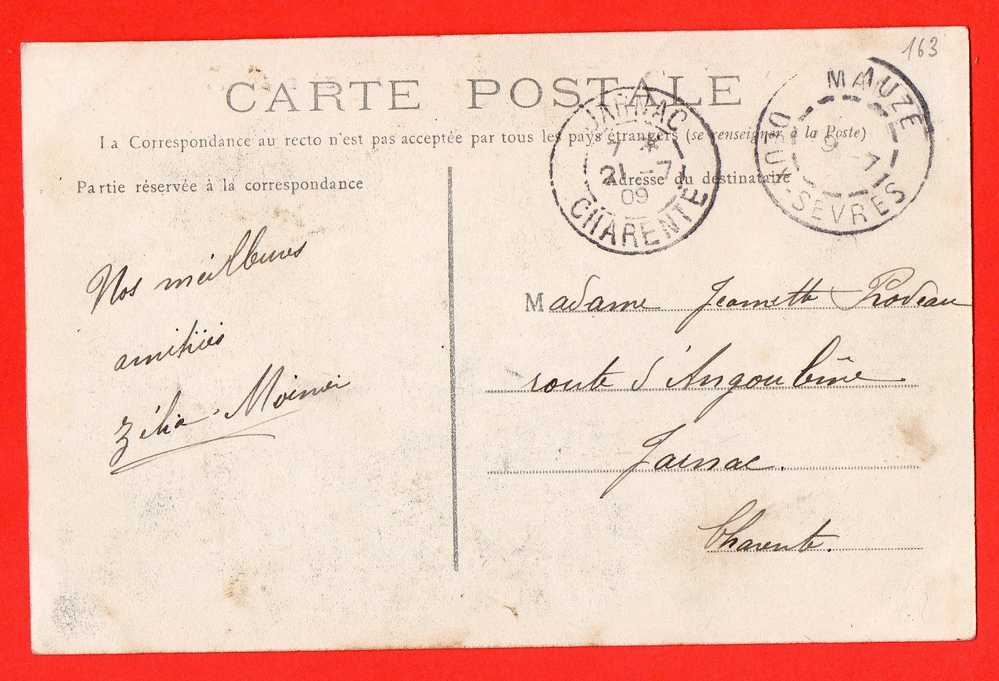 163
CARTE POSTALE
La Correspondance au recto n'est pas acceptée par tous les pays étrangers (se renseigner à la Poste)
Partie réservée à la correspondance
Adresse du destinataire
JARNAC
7 *
21 -7
09
CHARENTE
MAUZÉ
9 -7
DEUX-SÈVRES
Nos meilleures
amitiés
Zélia
Madame Jeannette
route d'Angoulême
Jarnac.
Charente.